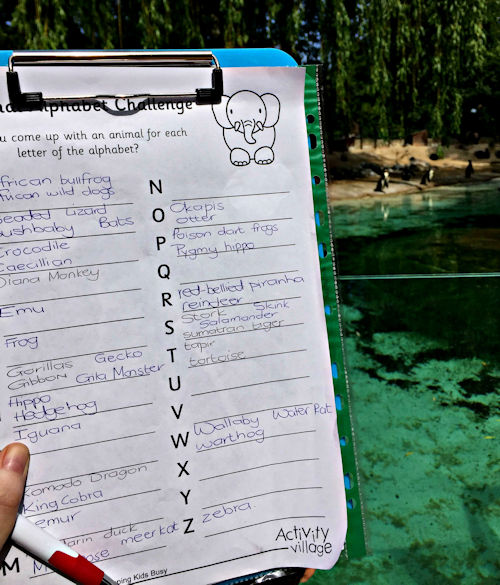 Alphabet Challenge
u come up with an animal for each
letter of the alphabet?
frican bullfrog
frican wild dogs
eaded Lizard
ushbaby Bats
Crocodile
Caecillian
Diana Monkey
Emu
Frog
Gorillas Gecko
Gibbon Gila Monster
Hippo
Hedgehog
Iguana
Komodo Dragon
King Cobra
emur
arin duck
meerkat
M
N
O Okapis
otter
P Poison dart frogs
Pygmy hippo
Q
R red-bellied piranha
reindeer
S Stork Skink
Salamander
sumatran tiger
T tapir
tortoise
U
V
W Wallaby Water Rat
warthog
X
Y
Z zebra
Activity
village
ping Kids Busy